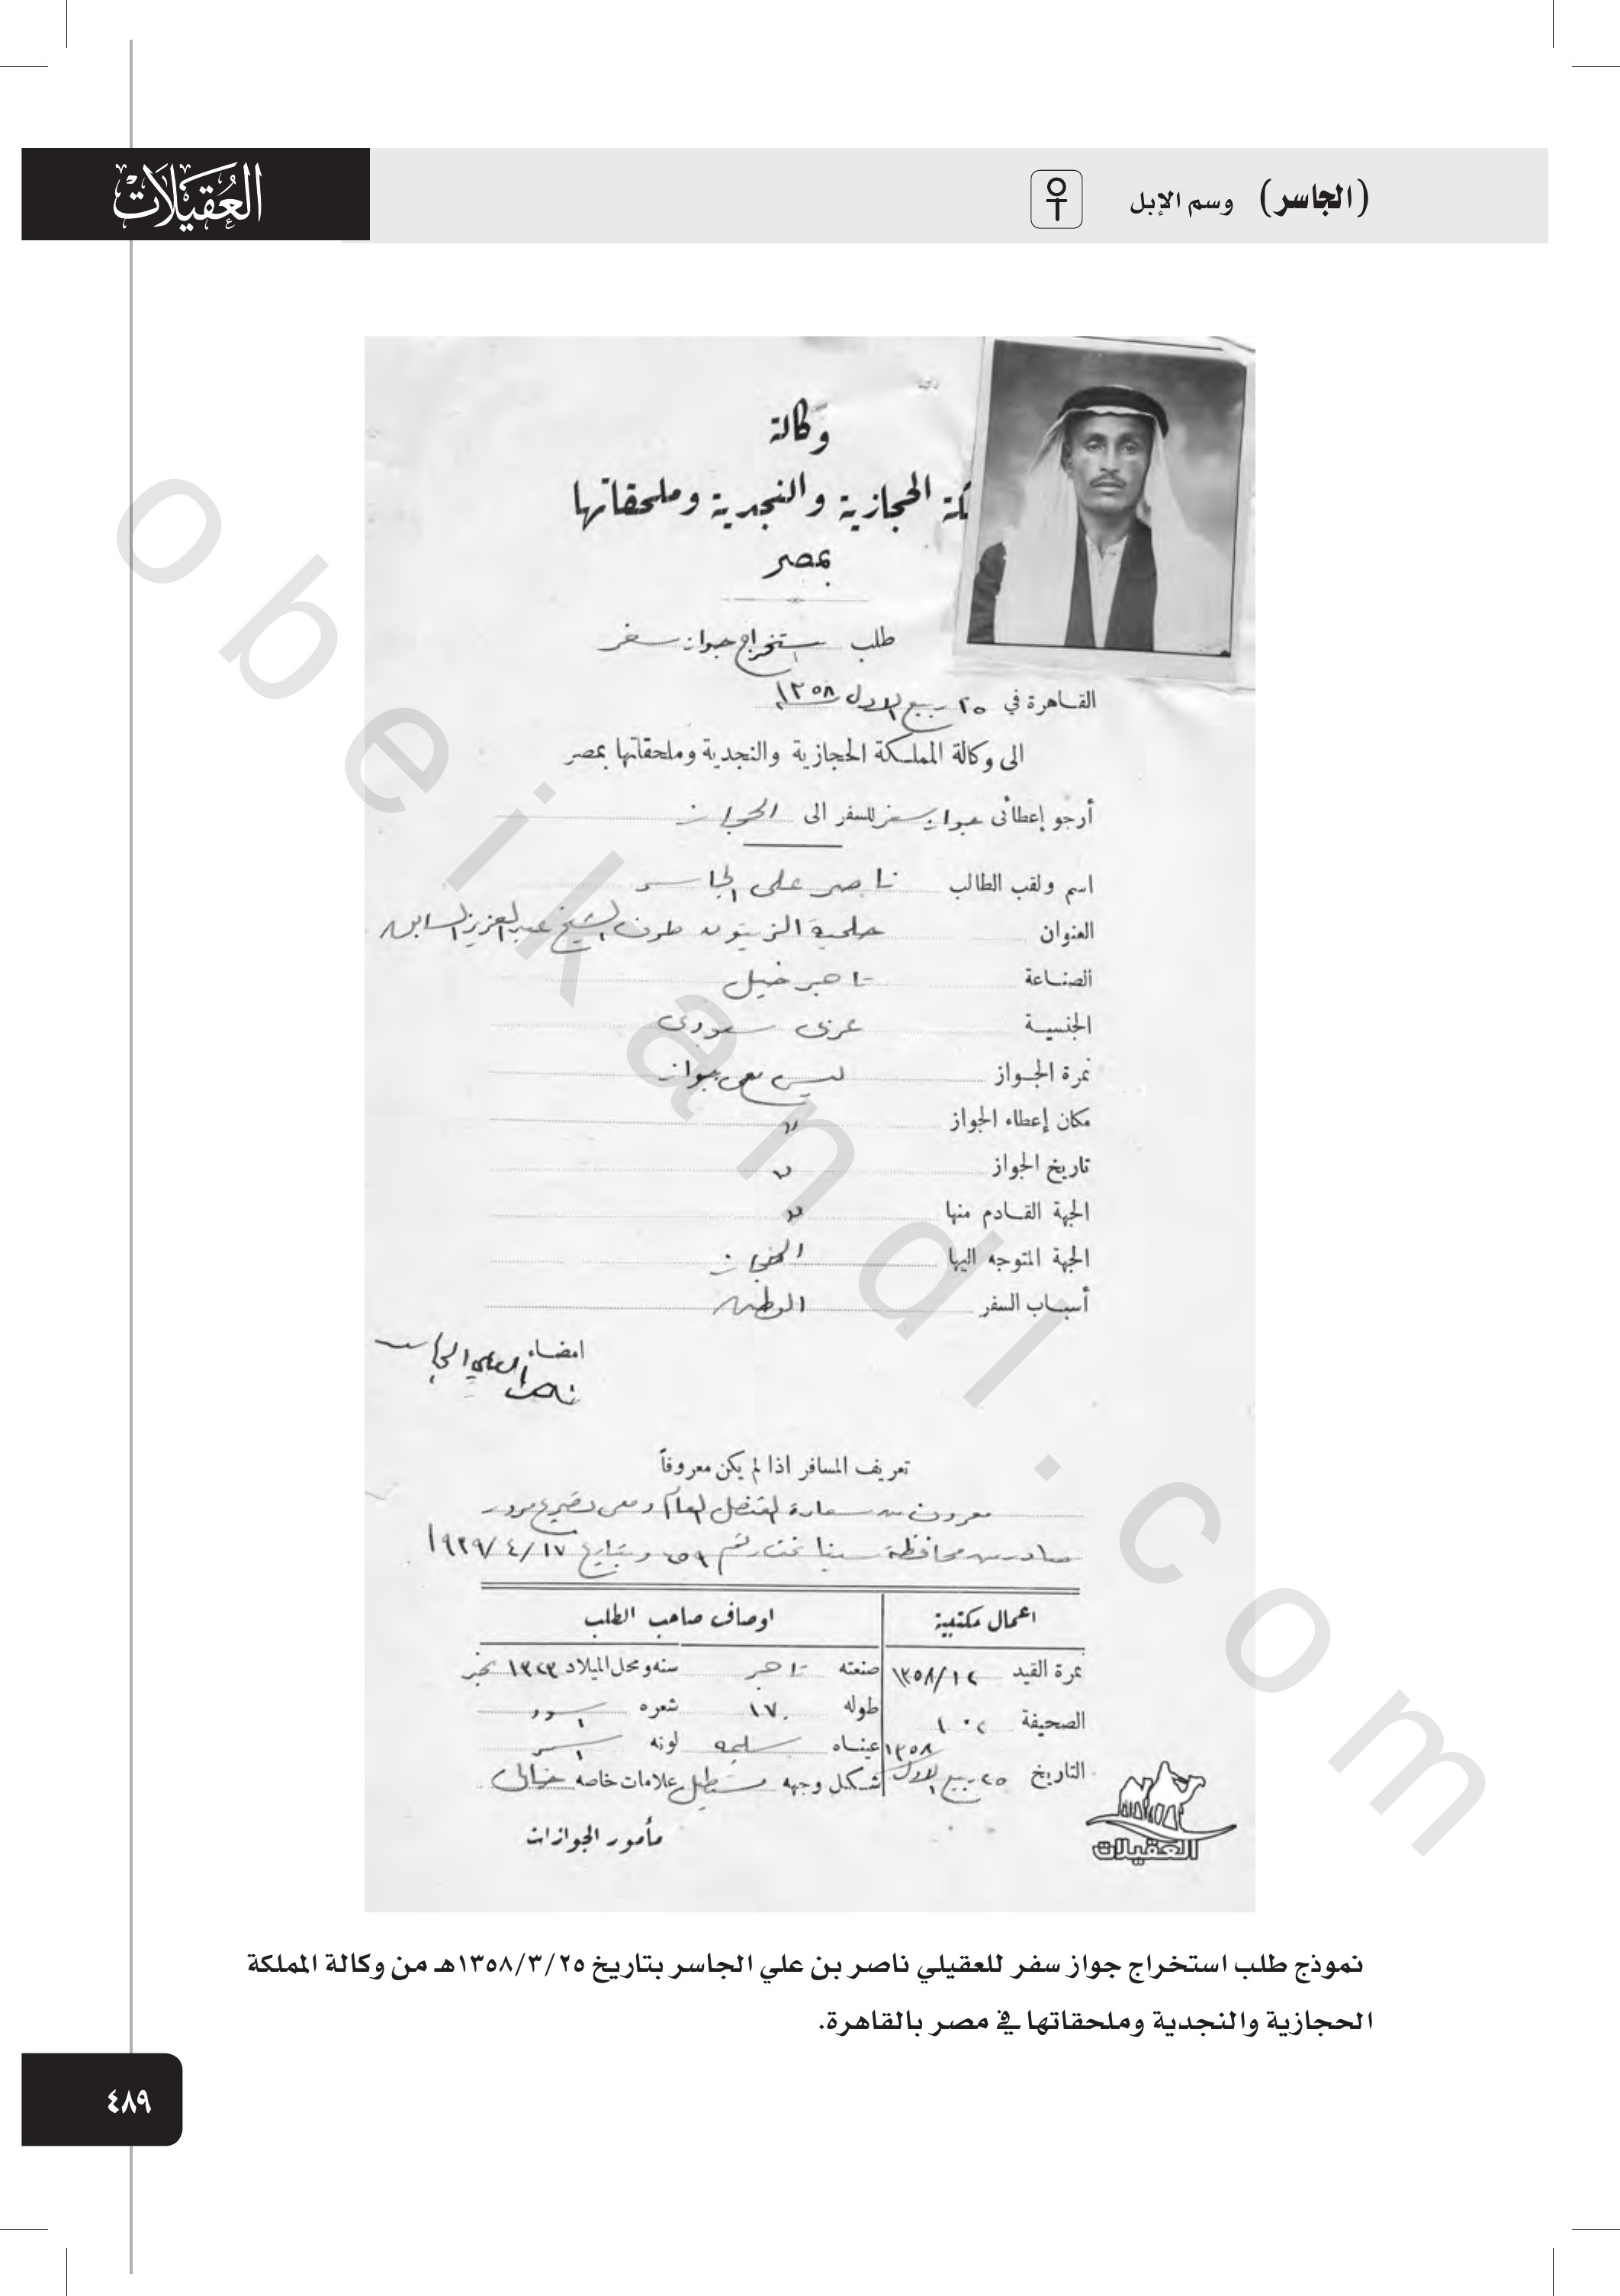 (الجاسر) وسم الإبل
العُقَيلَات
وكالة
ـكة الحجازية والنجدية وملحقاتها
بمصر
طلب استخراج جواز سفر
القاهرة في ٢٥ ربيع الاول ١٣٥٨
الى وكالة المملكة الحجازية والنجدية وملحقاتها بمصر
أرجو إعطائى جواز سفر للسفر الى الحجاز
اسم ولقب الطالب ناصر على الجاسر
العنوان حلمية الزيتون طرف الشيخ عبد العزيز السابق
الصناعة تاجر خيل
الجنسية عربى سعودى
نمرة الجواز ليس معى جواز
مكان إعطاء الجواز "
تاريخ الجواز "
الجهة القادم منها "
الجهة المتوجه اليها الحجاز
أسباب السفر الوطن
امضاء
ناصر العلي الجاسر
تعريف المسافر اذا لم يكن معروفاً
معروف من سعادة القنصل العام ومعى تصريح مرور
صادر من محافظة سينا تحت رقم ٥٩ وبتاريخ ١٧/٤/١٩٣٩
اعمال مكتبية
اوصاف صاحب الطلب
نمرة القيد ١٢/١٣٥٨ صنعته تاجر سنه ومحل الميلاد ١٣٢٣
الصحيفة ١٠٢ طوله ١٧٠ شعره اسود
عيناه سليمه لونه اسمر
التاريخ ٢٥ ربيع الاول ١٣٥٨ شكل وجهه مستطيل علامات خاصه خالى
مأمور الجوازات
العقيلات
نموذج طلب استخراج جواز سفر للعقيلي ناصر بن علي الجاسر بتاريخ ١٣٥٨/٣/٢٥هـ من وكالة المملكة
الحجازية والنجدية وملحقاتها في مصر بالقاهرة.
٤٨٩
obeikandi.com